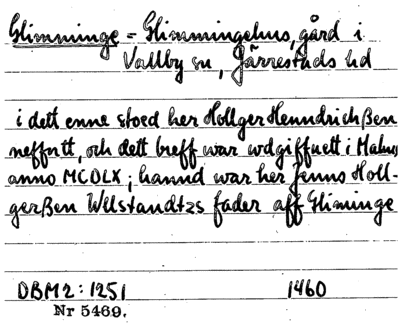 Glimminge = Glimmingehus, gård i
Vallby sn, Järrestads hd
i dett enne stoed her Hollger Henndrichßen
neffntt, och dett breff war wdgiffuett i Malmø
anno MCDLX; hannd war her Jenns Holl-
gerßen Wllstandtzs fader aff Gliminge
DBM2:1251 1460
Nr 5469.